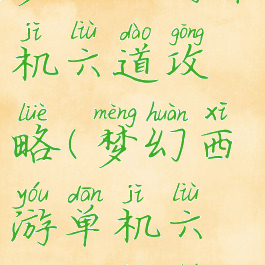 jī liù dào gōng
机六道攻
lüè mèng huàn xī
略(梦幻西
yóu dān jī liù
游单机六